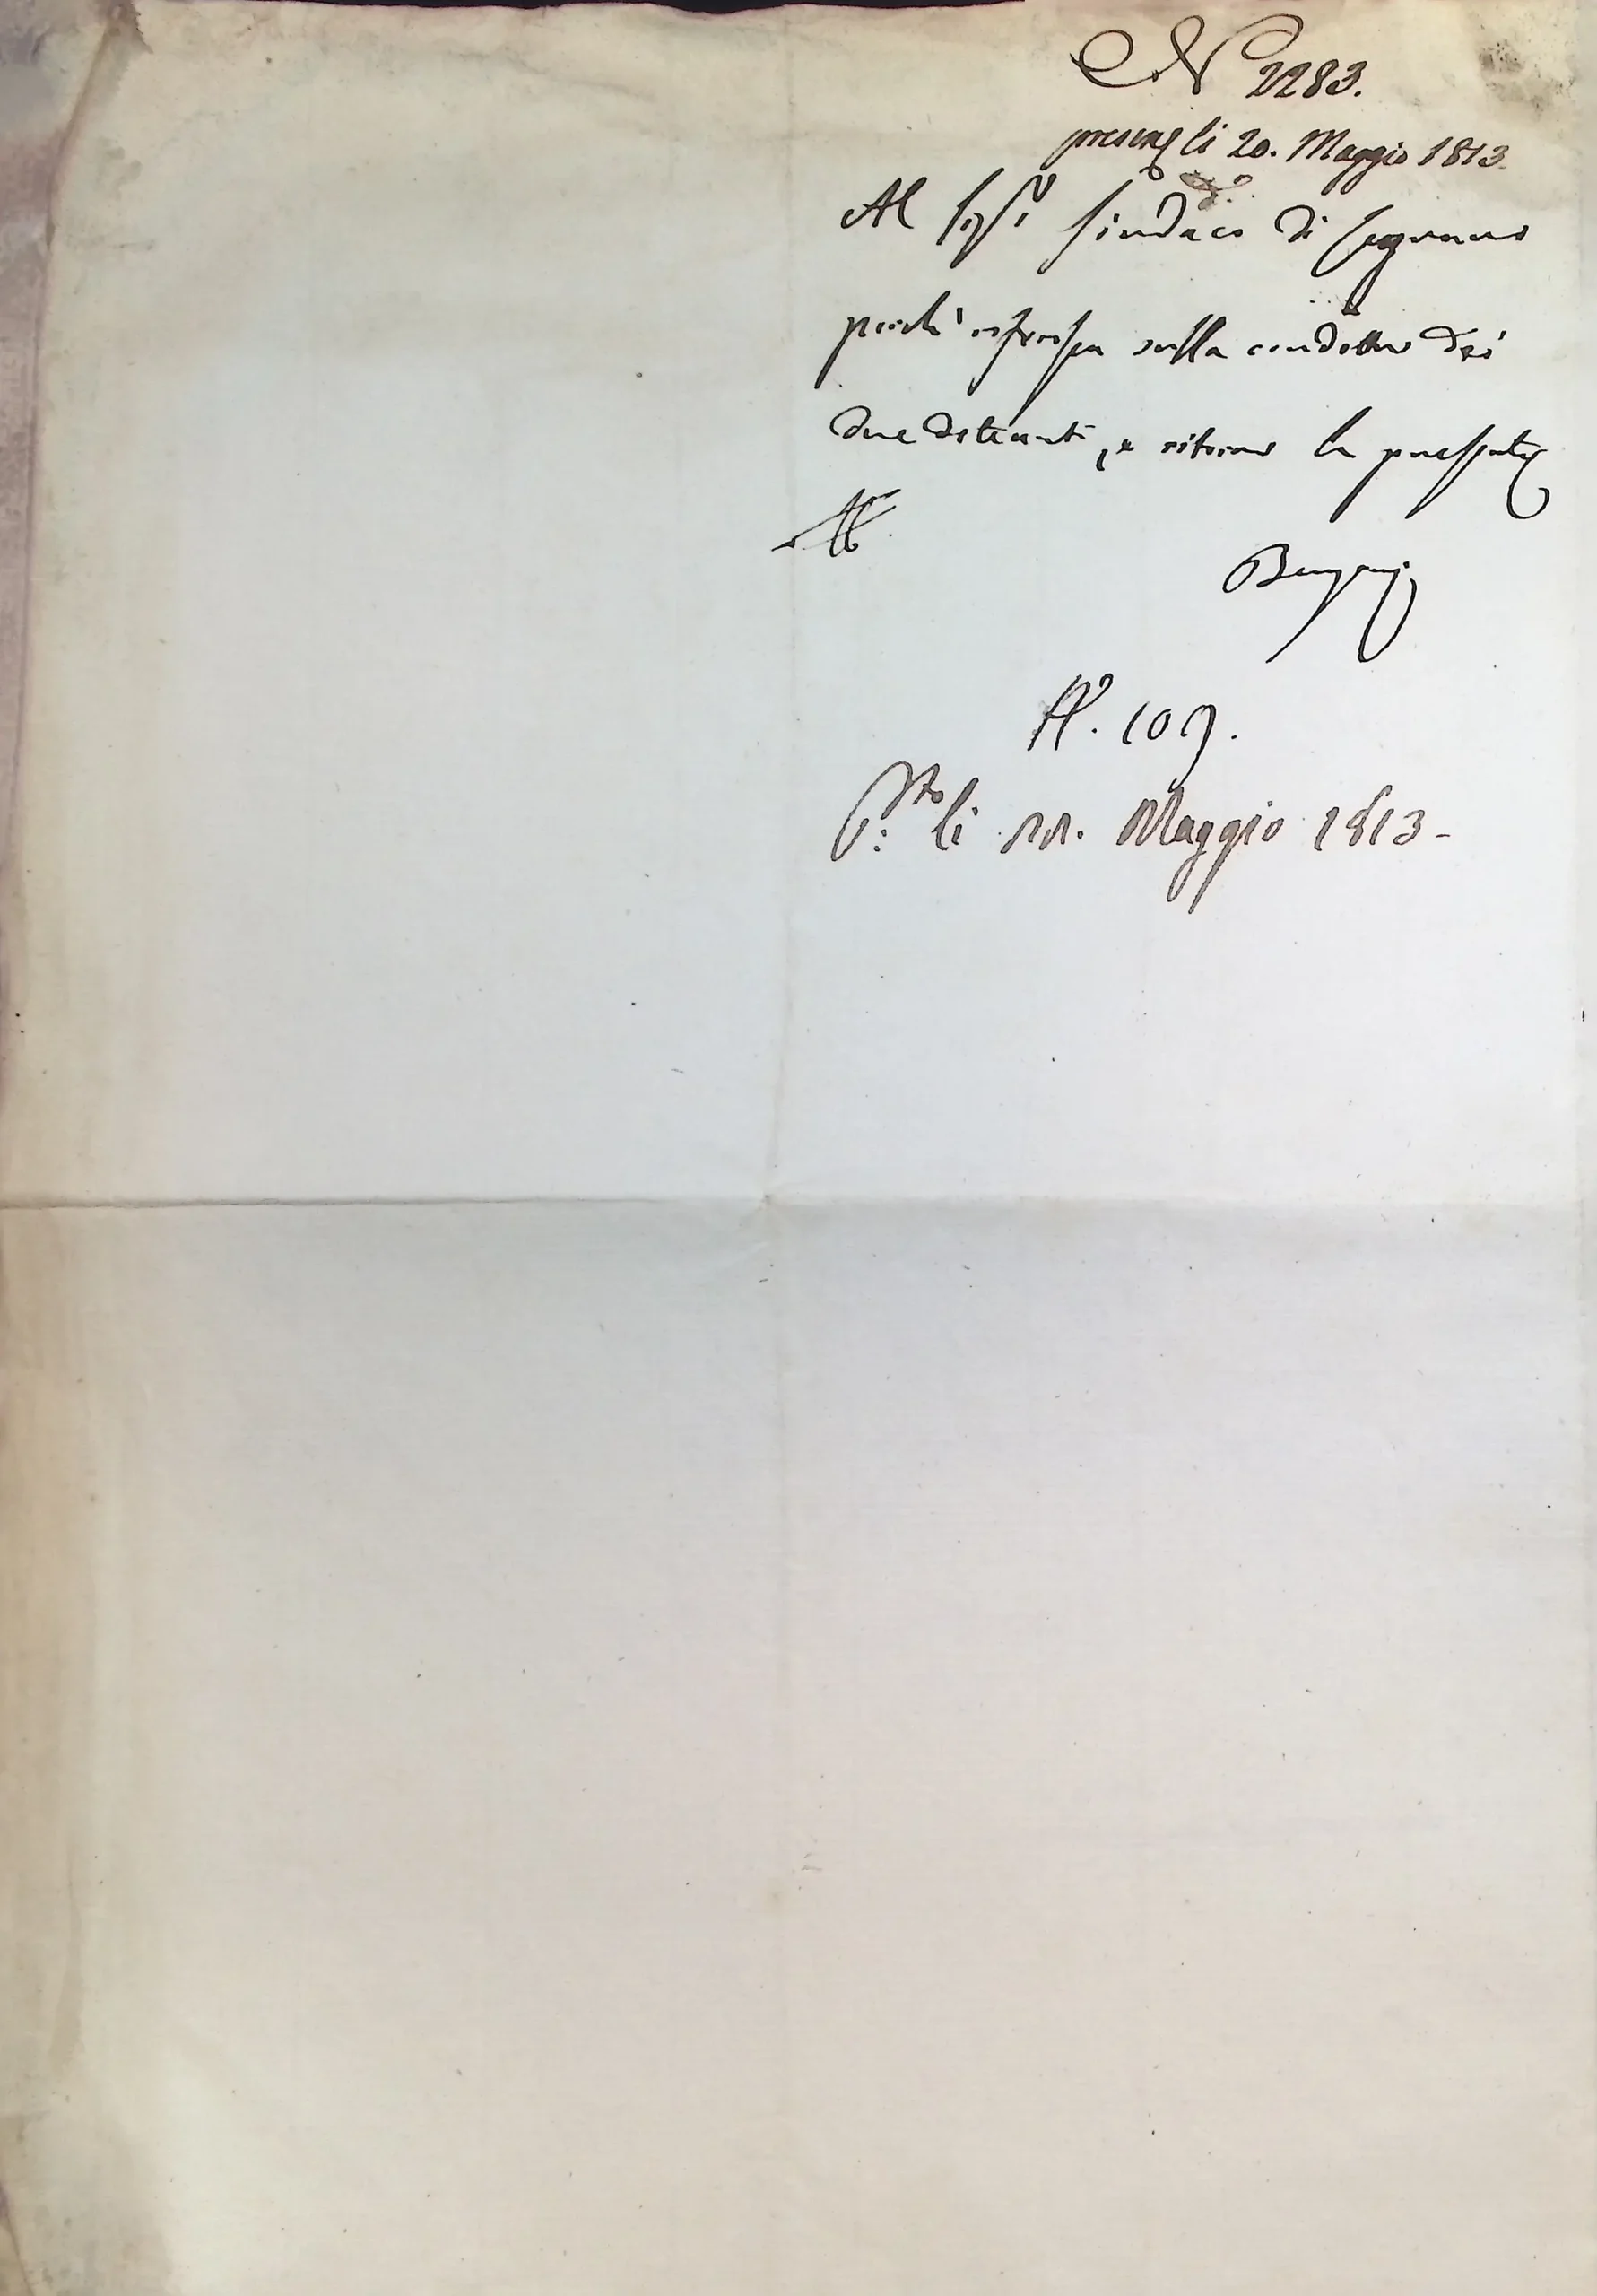 N 2283.
present. li 20. Maggio 1813
Al Sigr. Sindaco di Segonzano
perchè sulla condotta dei
due detenuti, e ritorni la presente
N. 109.
Pto: li 22. Maggio 1813-